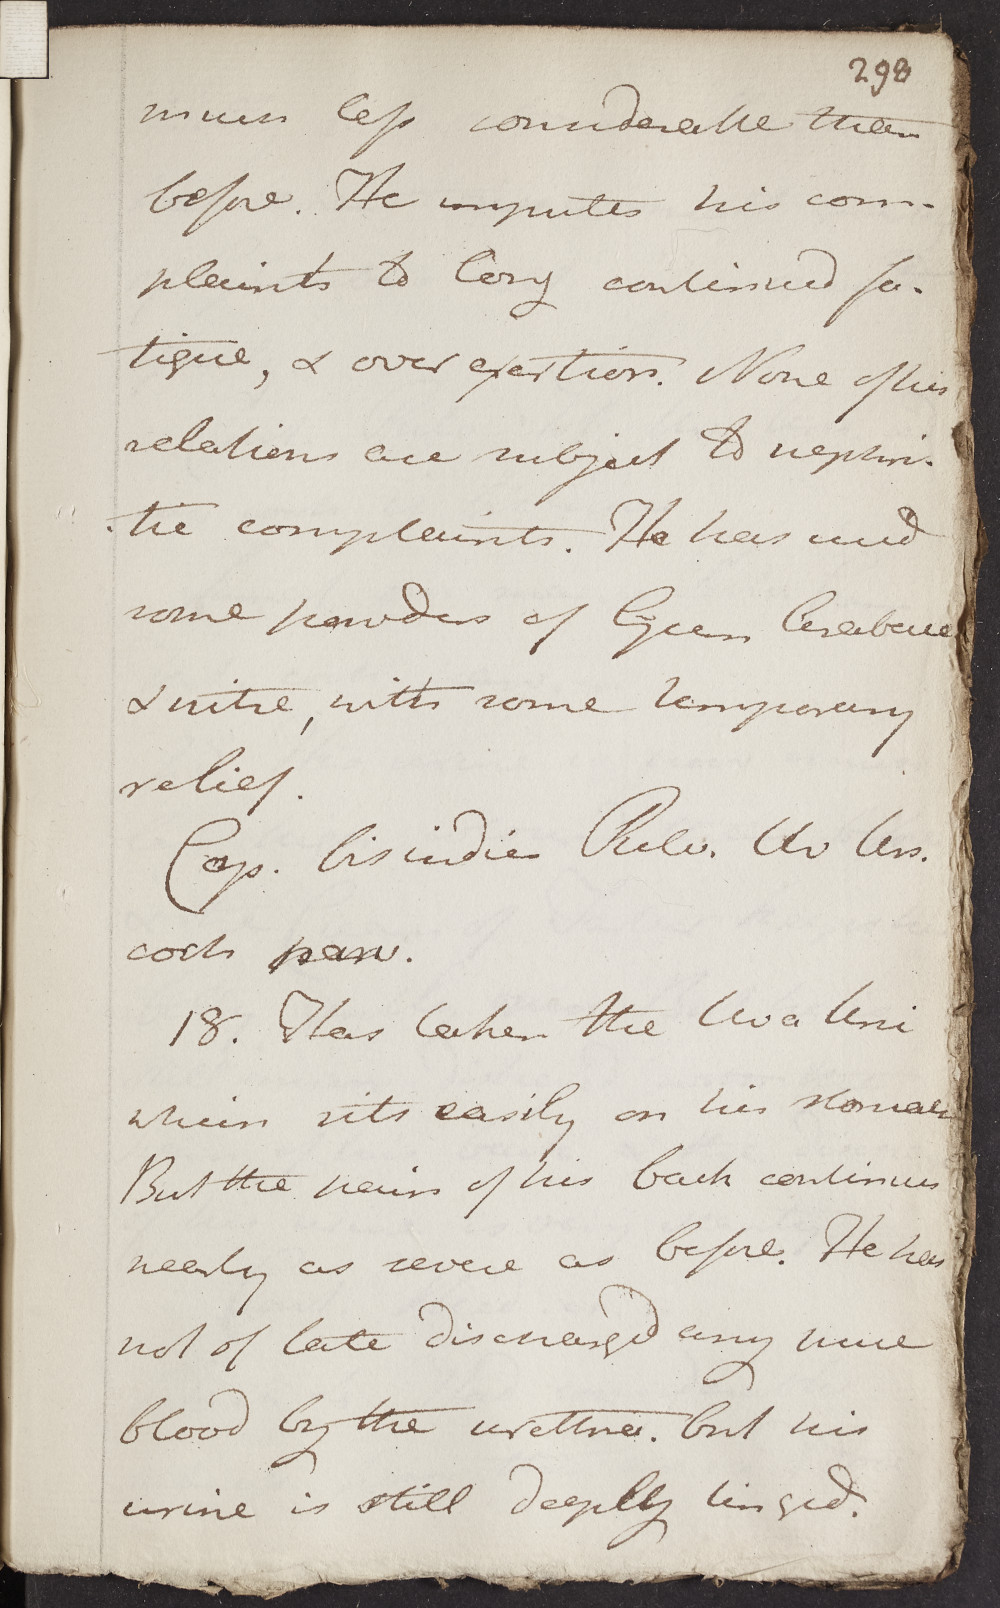 298
much less considerable than
before. He imputes his com-
plaints to long continued fa-
tigue, & over exertion. None of his
relations are subject to nephri-
tic complaints. He has used
some powders of Gum Arabic
& nitre, with some temporary
relief.
Cap. bis indies Pulv. Uv Urs.
coch parv.
18. Has taken the Uva Ursi
which sits easily on his stomach
But the pain of his back continues
nearly as severe as before. He has
not of late discharged any pure
blood by the urethra. but his
urine is still deeply tinged.